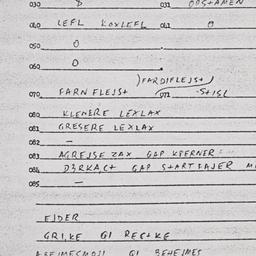 030 D 031 OPSTAMEN
040 LEFL KOXLEFL 041 O
050 O
060 O
) FARDIFLEJST )
070 FARN FLEJST 071 -STISL
080 KLENERE LEXLAX
081 GRESERE LEXLAX
082 —
083 AGREJSE ZAX GAP KPERNER
084 DARKACT GAP STARTFAJER
085 —
FIDER
GRIKE GI RECTKE
GI BEHEJMES